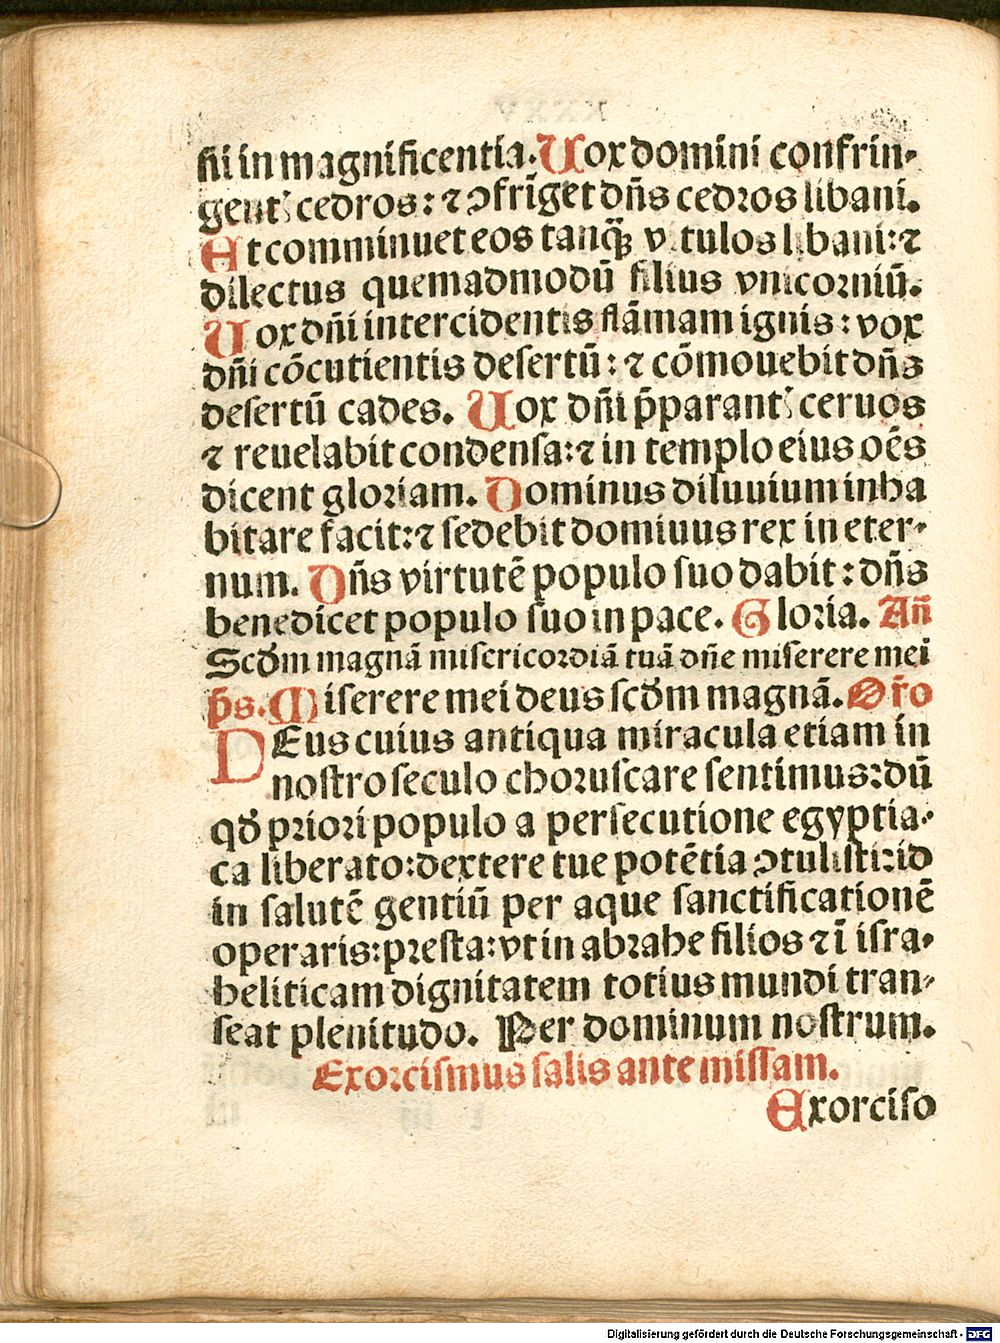 ñi in magnificentia. Uox domini confrin-
gentꝰ cedros: ⁊ ꝯfrīget dn̄s cedros libani.
Et comminuet eos tanqȝ vitulos libani: ⁊
dilectus quemadmodū filius vnicorniū.
Uox dn̄i intercidentis flāmam ignis: vox
dn̄i cōcutientis desertū: ⁊ cōmouebit dn̄s
desertū cades. Uox dn̄i p̄parantꝰ ceruos
⁊ reuelabit condensa: ⁊ in templo eius oēs
dicent gloriam. Dominus diluuium inha
bitare facit: ⁊ sedebit domiuus rex in eter-
num. Dn̄s virtutē populo suo dabit: dn̄s
benedicet populo suo in pace. Gloria. Añ
Scd̄m magnā misericordiā tuā dn̄e miserere mei
p̄s. Miserere mei deus scd̄m magnā. Or̄o
DEus cuius antiqua miracula etiam in
nostro seculo choruscare sentimus: dū
qd̄ priori populo a persecutione egyptia-
ca liberato: dextere tue potētia ꝯtulisti: id
in salutē gentiū per aque sanctificationē
operaris: presta: vt in abrahe filios ⁊ ī isra-
heliticam dignitatem totius mundi tran-
seat plenitudo. Per dominum nostrum.
Exorcismus salis ante missam.
Exorciso
Digitalisierung gefördert durch die Deutsche Forschungsgemeinschaft - DFG